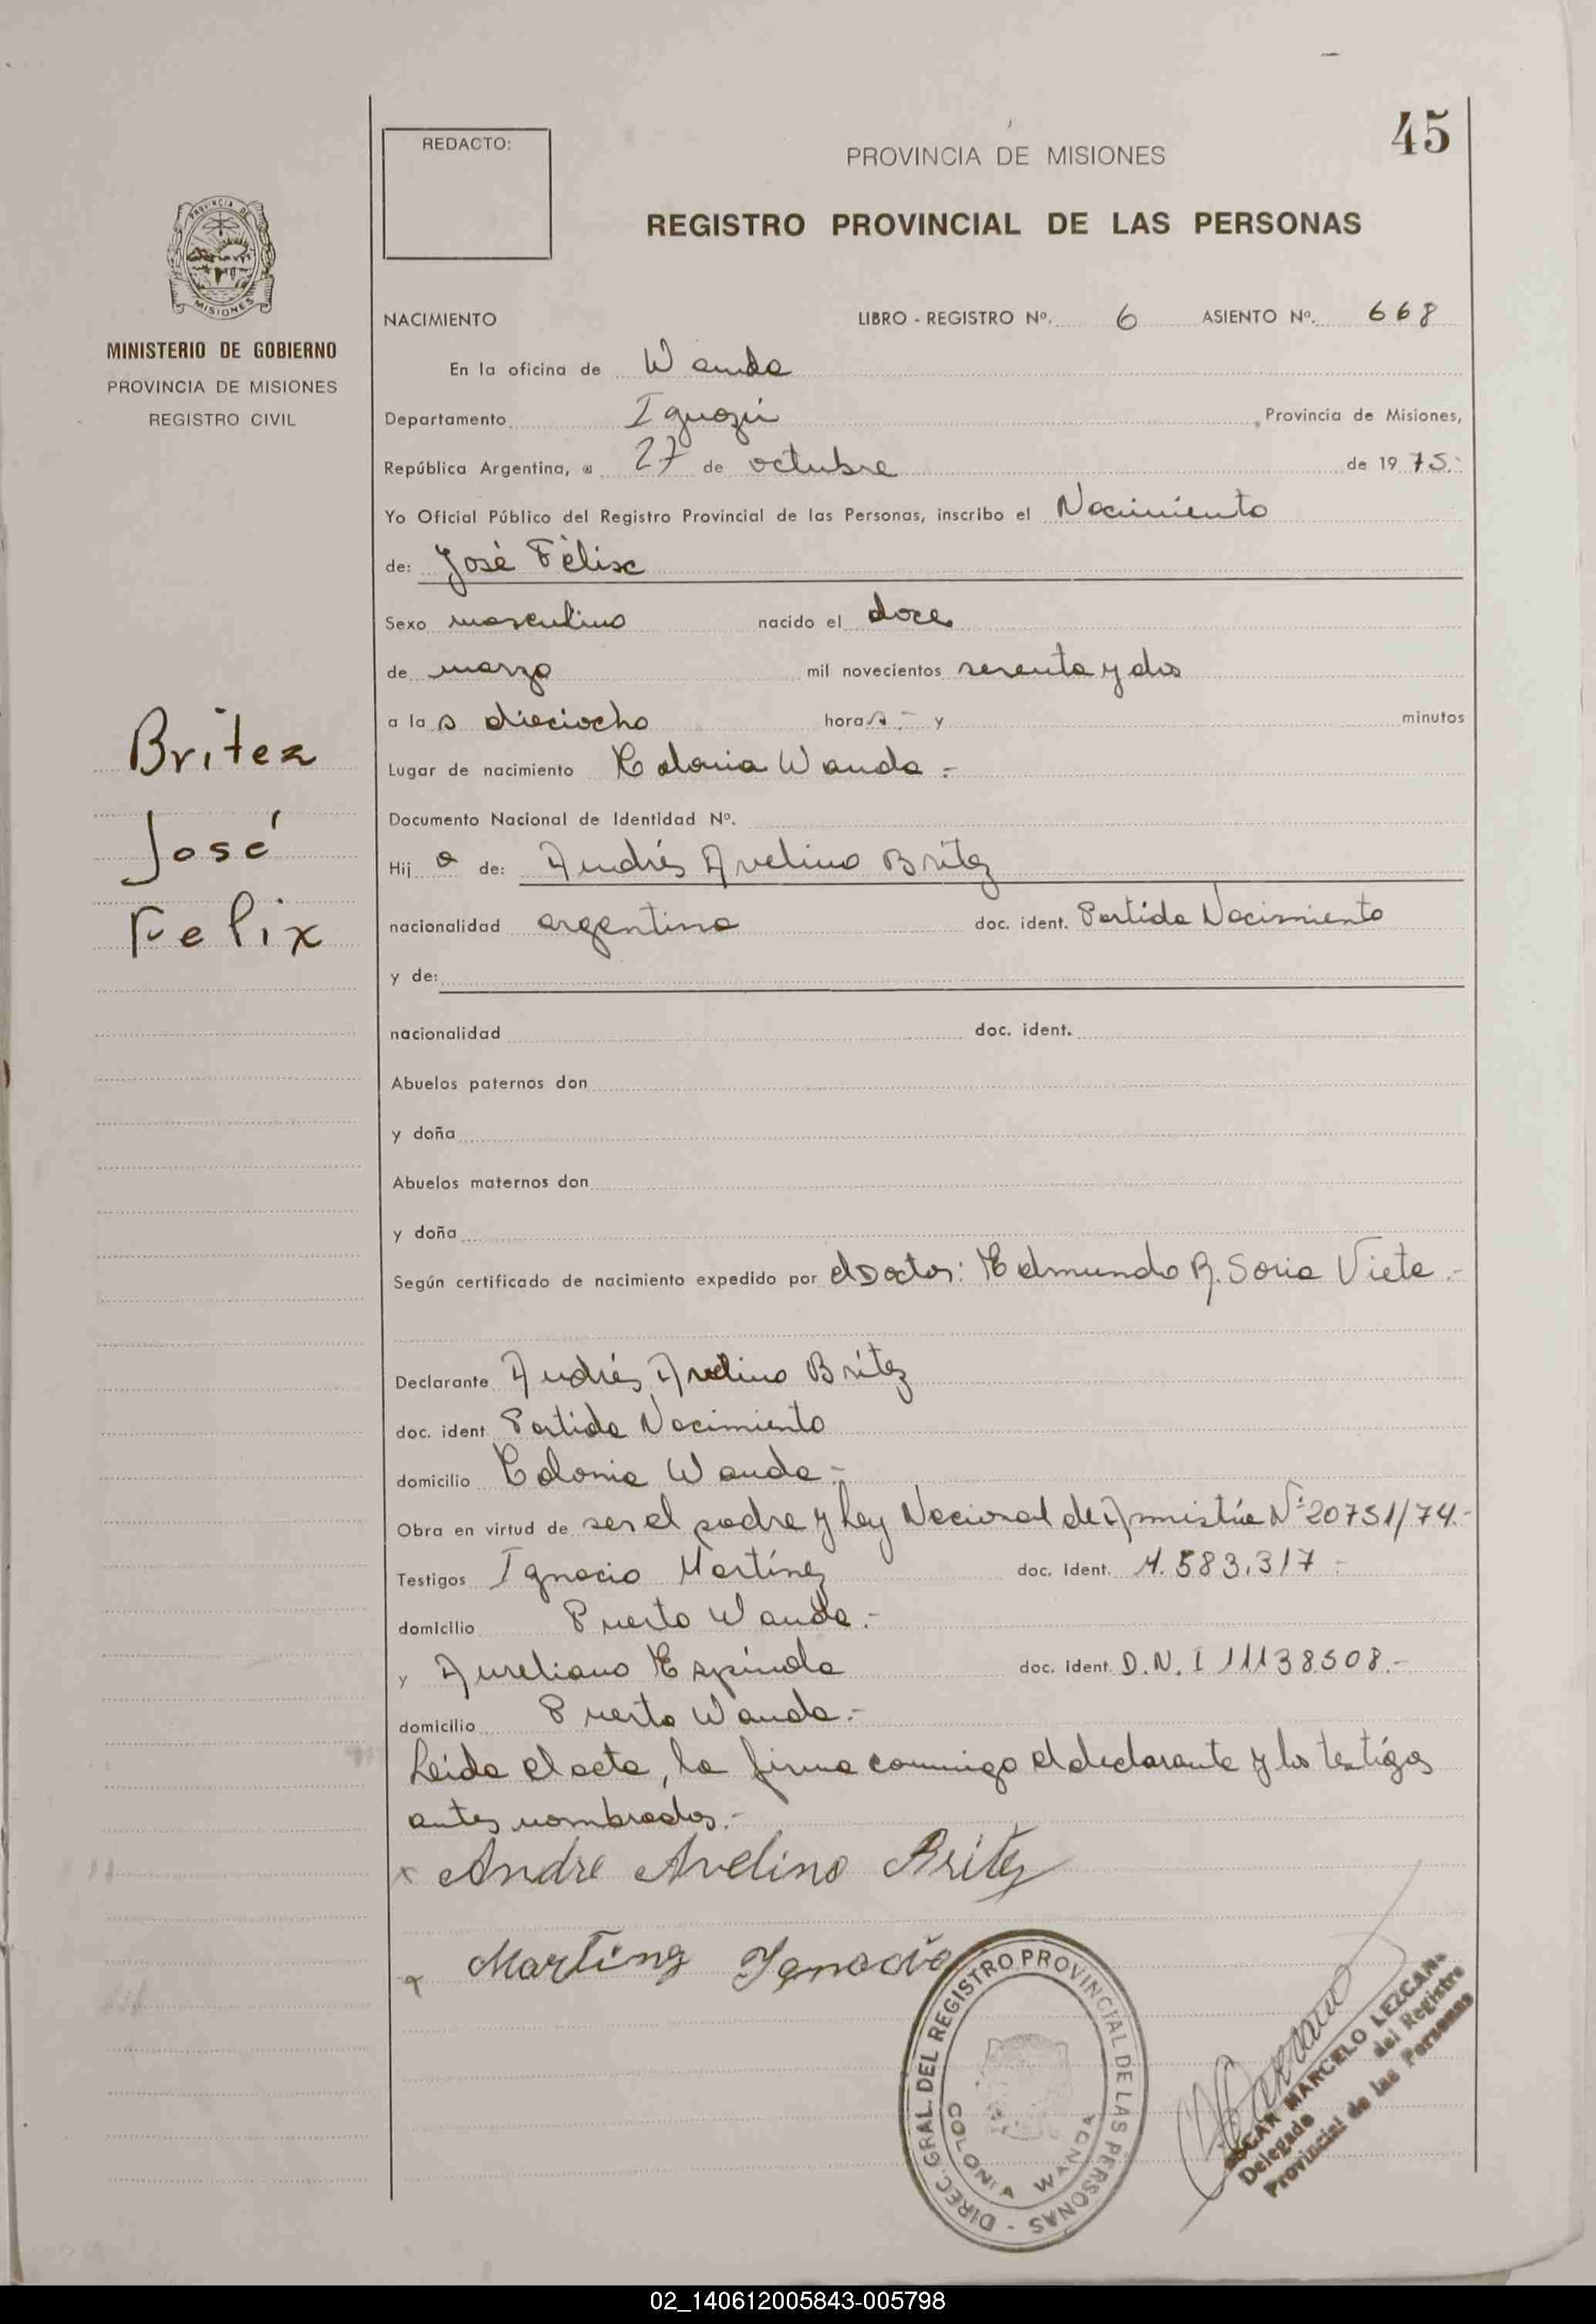 45
REDACTO:
PROVINCIA DE MISIONES
REGISTRO PROVINCIAL DE LAS PERSONAS
PROVINCIA DE
MISIONES
MINISTERIO DE GOBIERNO
PROVINCIA DE MISIONES
REGISTRO CIVIL
NACIMIENTO LIBRO - REGISTRO Nº. 6 ASIENTO Nº. 668
En la oficina de Wanda
Departamento Iguazú, Provincia de Misiones,
República Argentina, a 27 de octubre de 1975.-
Yo Oficial Público del Registro Provincial de las Personas, inscribo el Nacimiento
de: José Félix
Sexo masculino nacido el doce
de marzo mil novecientos setenta y dos
a las dieciocho horas.- y minutos
Lugar de nacimiento Colonia Wanda.-
Documento Nacional de Identidad Nº.
Hijo de: Andrés Avelino Britez
nacionalidad argentina doc. ident. Partida Nacimiento
y de:
nacionalidad doc. ident.
Abuelos paternos don
y doña
Abuelos maternos don
y doña
Según certificado de nacimiento expedido por el Doctor: Edmundo R. Soria Vieta.-
Declarante Andrés Avelino Britez
doc. ident. Partida Nacimiento
domicilio Colonia Wanda.-
Obra en virtud de ser el padre y Ley Nacional de Amnistía Nº 20751/74.-
Testigos Ignacio Martínez doc. ident. M. 583.317.-
domicilio Puerto Wanda.-
y Aureliano Espínola doc. ident. D.N.I 11138508.-
domicilio Puerto Wanda.-
Leída el acta, la firma conmigo el declarante y los testigos
antes nombrados.-
x Andre Avelino Britez
Martinez Ignacio
Britez
José
Felix
DIREC. GRAL. DEL REGISTRO PROVINCIAL DE LAS PERSONAS -
COLONIA WANDA
OSCAR MARCELO LEZCANO
Delegado del Registro
Provincial de las Personas
02_140612005843-005798